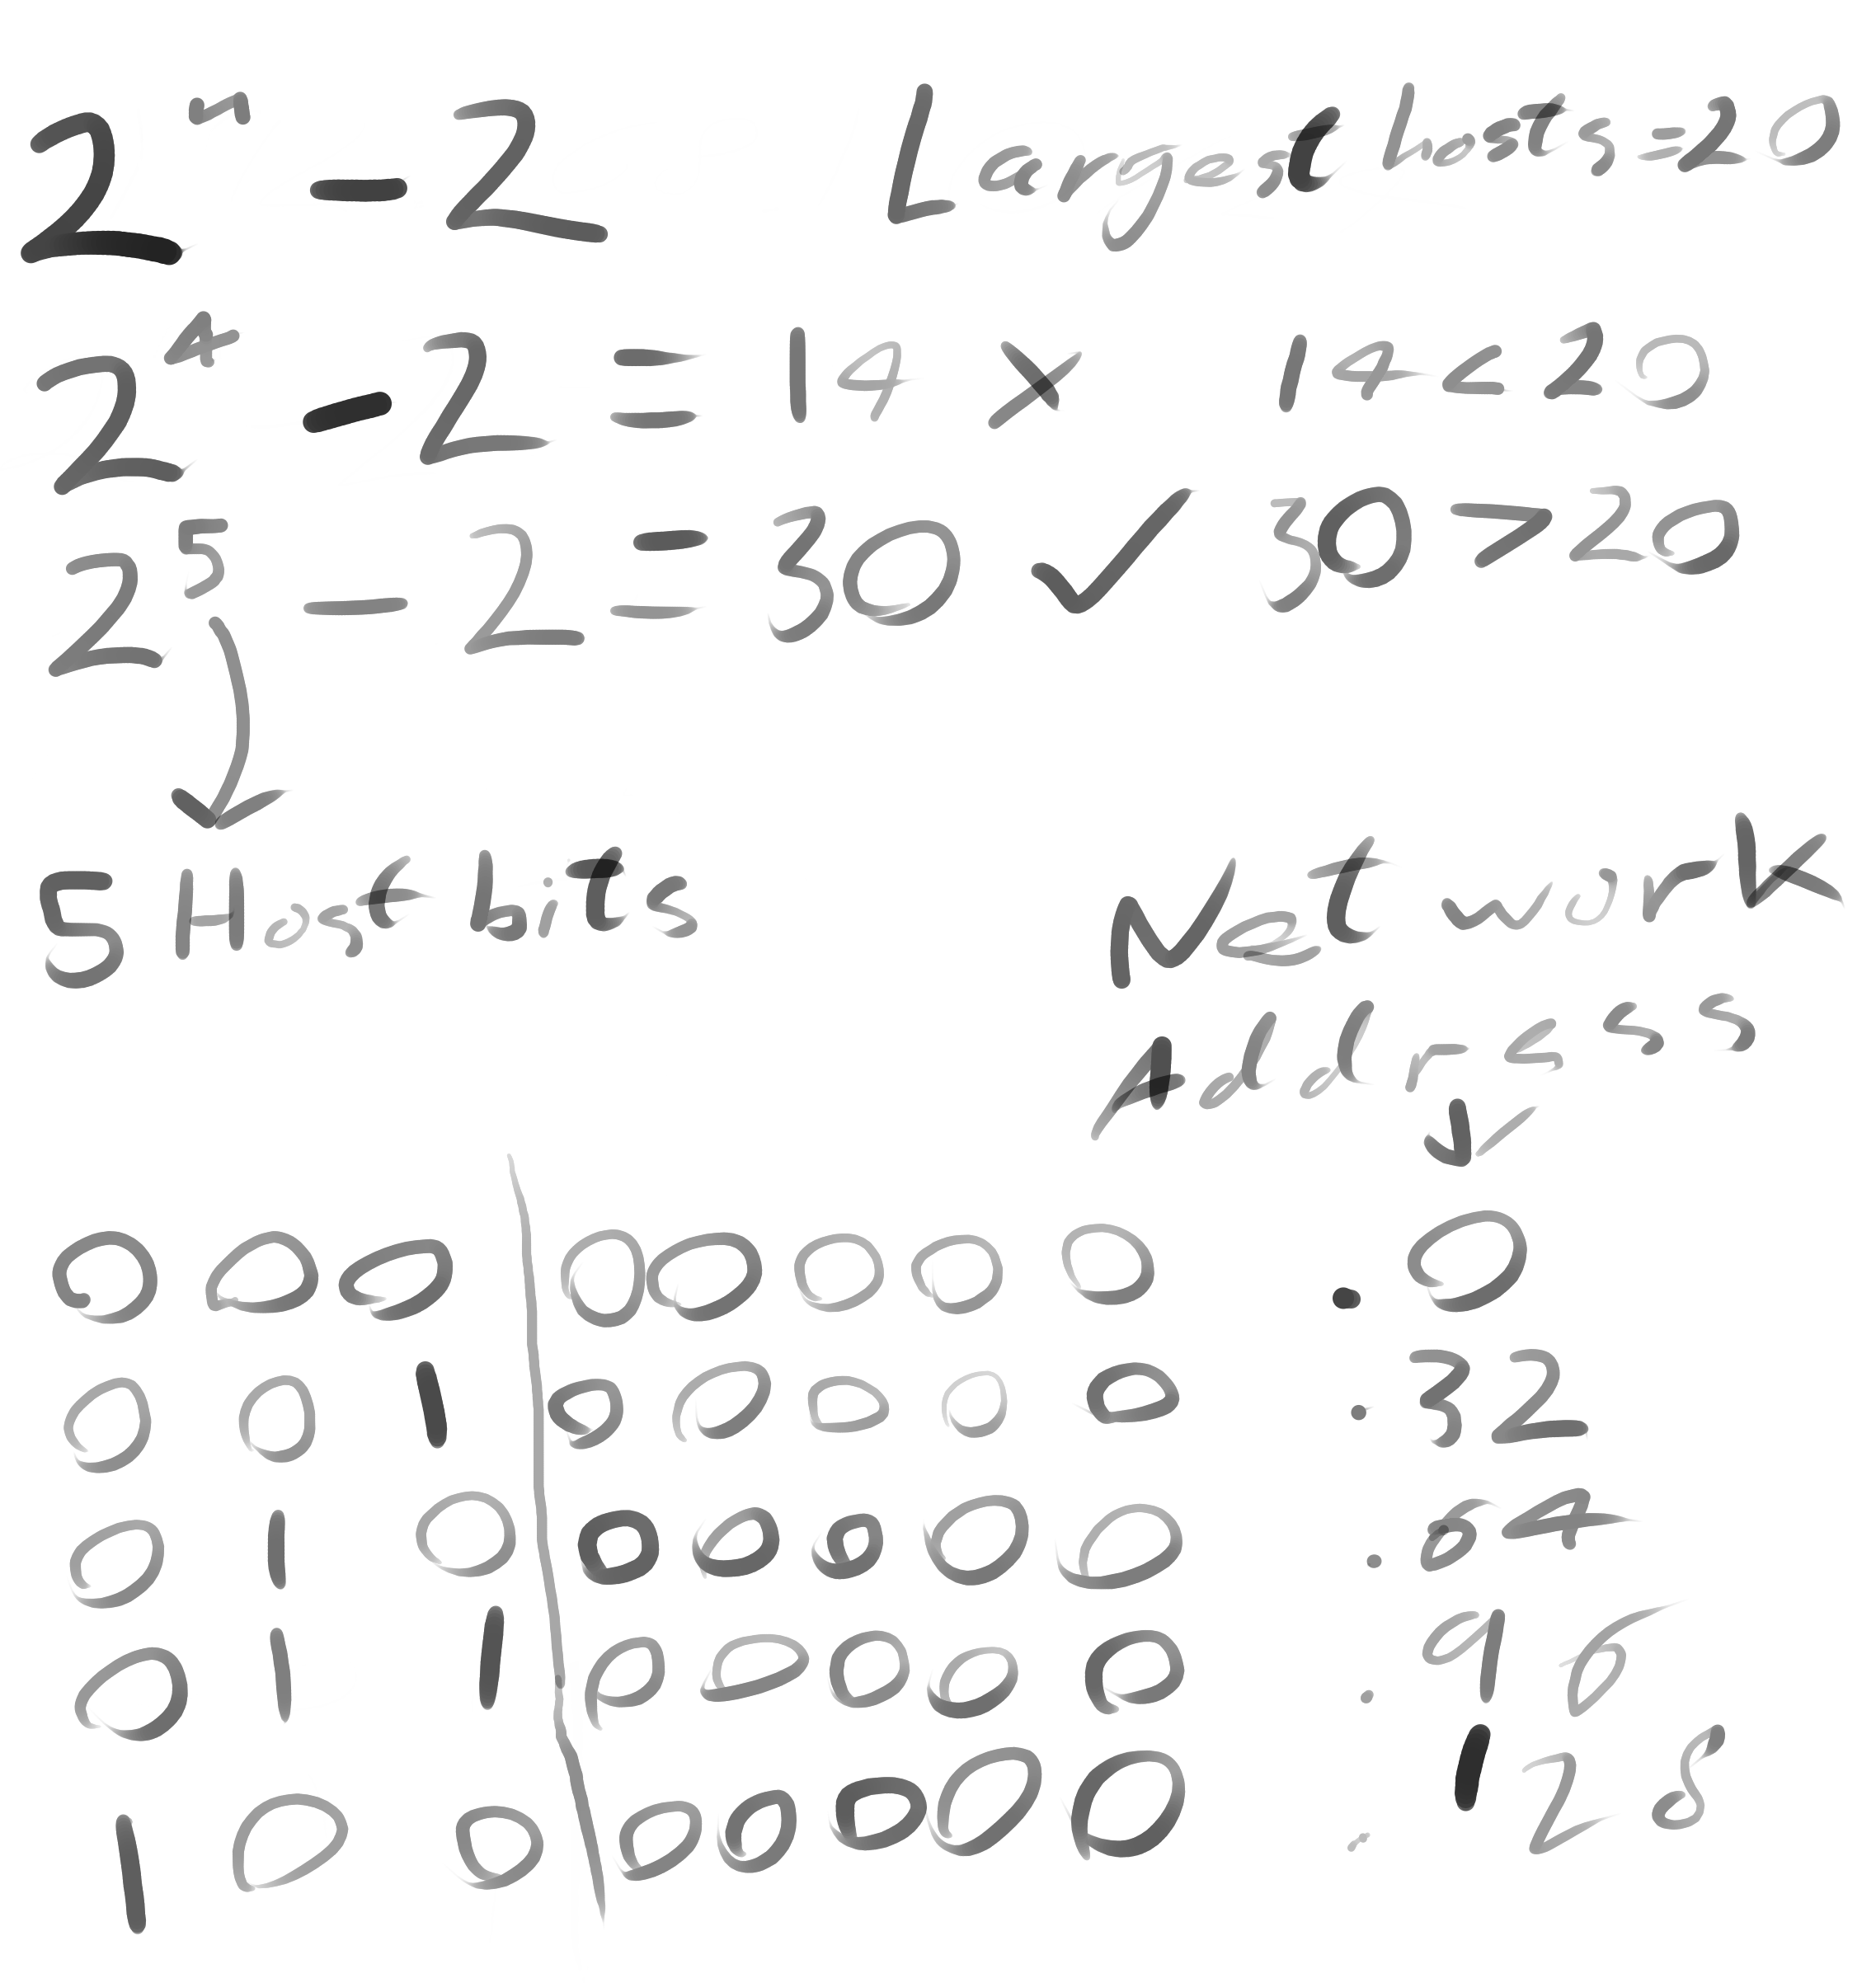 2ⁿ - 2 Largest hosts = 20
2⁴ - 2 = 14 × 14 < 20
2⁵ - 2 = 30 ✓ 30 > 20
5 Host bits
Network
Address
000 | 00000 .0
001 | 00000 .32
010 | 00000 .64
011 | 00000 .96
100 | 00000 .128